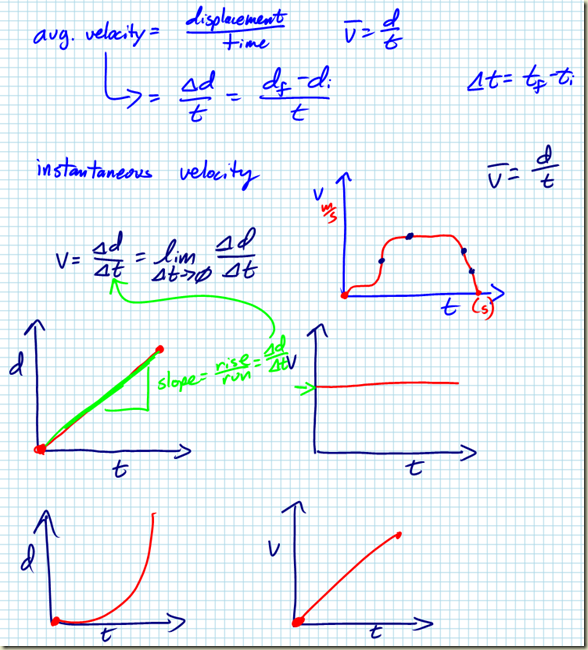 avg. velocity = displacement/time  v̅ = d/t
= Δd/t = df - di/t  Δt = tf - ti
instantaneous velocity  v̅ = d/t
v = Δd/Δt = lim Δt→0 Δd/Δt
v m/s
t (s)
d
slope = rise/run = Δd/Δt
v
t
t
d
v
t
t